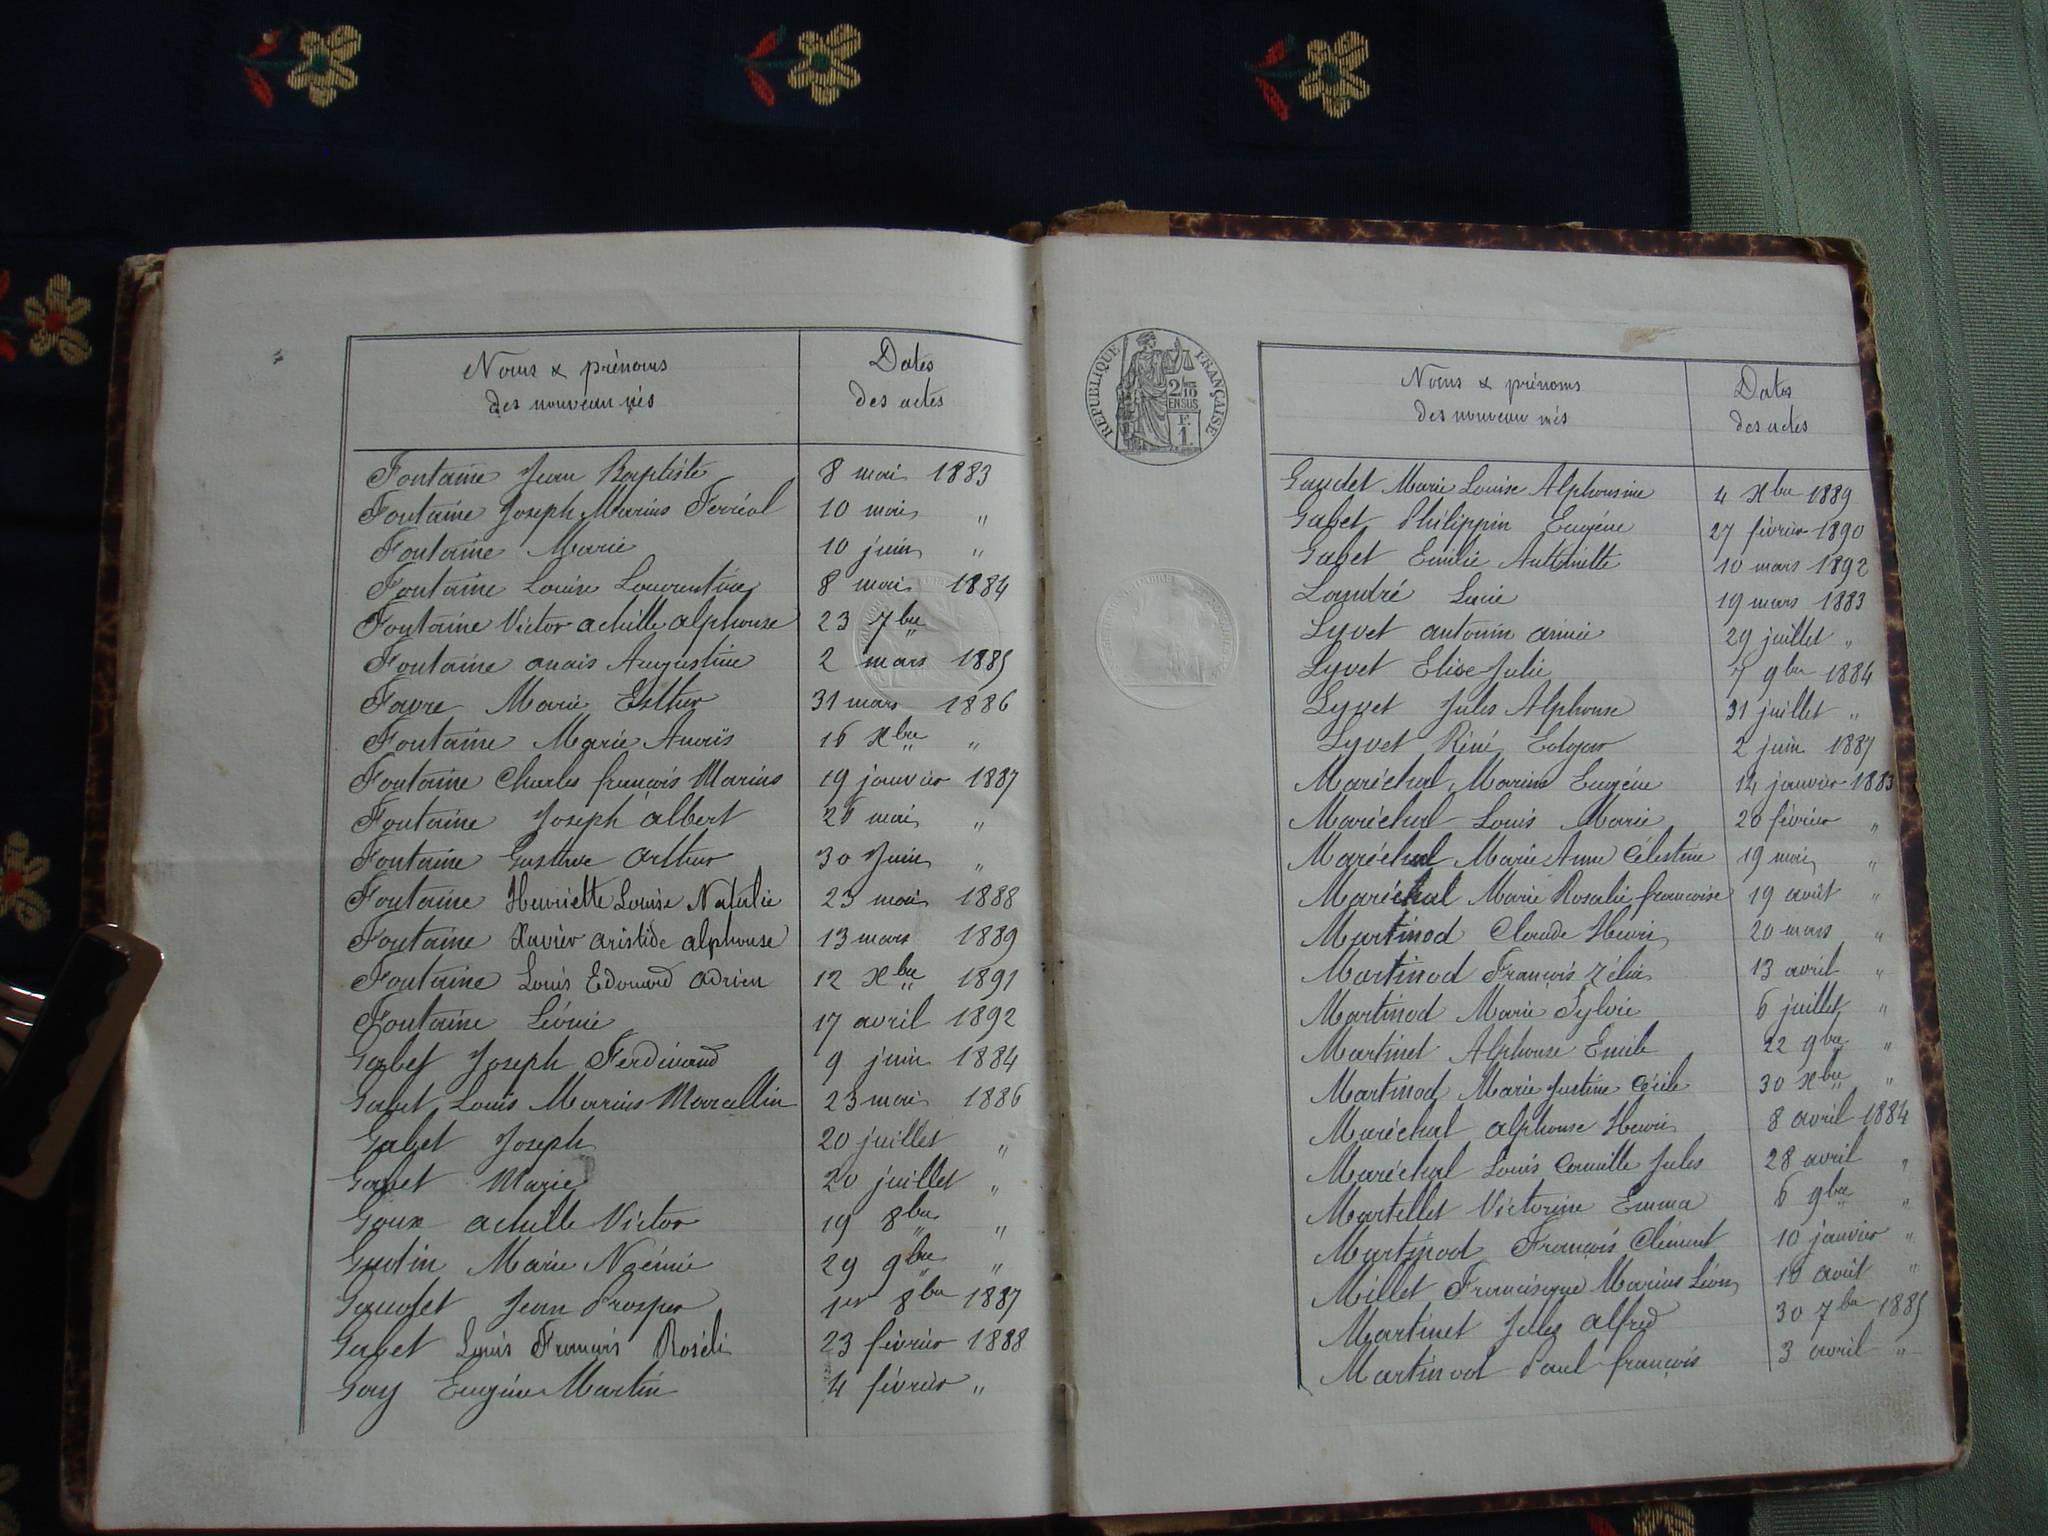 Noms & prénoms
des nouveau nés
Dates
des actes
Fontaine Jean Baptiste 8 mai 1883
Fontaine Joseph Marius Ferréol 10 mai "
Fontaine Marie 10 juin "
Fontaine Louise Laurentine 8 mai 1884
Fontaine Victor achille alphonse 23 7bre "
Fontaine anais Augustine 2 mars 1885
Favre Marie Esther 31 mars 1886
Fontaine Marie Anaïs 16 Xbre "
Fontaine Charles françois Marius 19 janvier 1887
Fontaine Joseph albert 26 mai "
Fontaine Gustave arthur 30 Juin "
Fontaine Henriette Louise Natalie 23 mai 1888
Fontaine Xavier aristide alphonse 13 mars 1889
Fontaine Louis Edouard adrien 12 Xbre 1891
Fontaine Léonie 17 avril 1892
Gabet Joseph Ferdinand 9 juin 1884
Gabet Louis Marius Marcellin 23 mai 1886
Gabet Joseph 20 juillet "
Gabet Marie 20 juillet "
Goux achille Victor 19 8bre "
Gudin Marie Noémie 29 9bre "
Jean Prosper 1er 8bre 1887
Gabet Louis François Roséli 23 février 1888
Gay Eugène Martin 4 février "
RÉPUBLIQUE FRANÇAISE
2/10
EN SUS
F.
1
Noms & prénoms
des nouveau nés
Dates
des actes
Gaudet Marie Louise Alphonsine 4 Xbre 1889
Gabet Philippin Eugène 27 février 1890
Gabet Emilie Antoinette 10 mars 1892
Landré Lucie 19 mars 1883
Lyvet antonin aimée 29 juillet "
Lyvet Elise Julie 7 9bre 1884
Lyvet Jules Alphonse 31 juillet "
Lyvet Réné Edgar 2 juin 1887
Maréchal Marius Eugène 14 janvier 1883
Maréchal Louis Marie 20 février "
Maréchal Marie Anne Célestine 19 mai "
Maréchal Marie Rosalie françoise 19 août "
Martinod Claude Henri 20 mars "
Martinod François Zélie 13 avril "
Martinod Marie Sylvie 6 juillet "
Martinet Alphonse Emile 22 9bre "
Martinod Marie Justine Cécile 30 Xbre "
Maréchal alphonse Henri 8 avril 1884
Maréchal Louis Camille Jules 28 avril "
Martellet Victorine Emma 6 9bre "
Martinod François Clément 10 janvier "
Millet Francisque Marius Léon août "
Martinet Jules alfred 30 7bre 1885
Martinod Paul françois 3 avril "